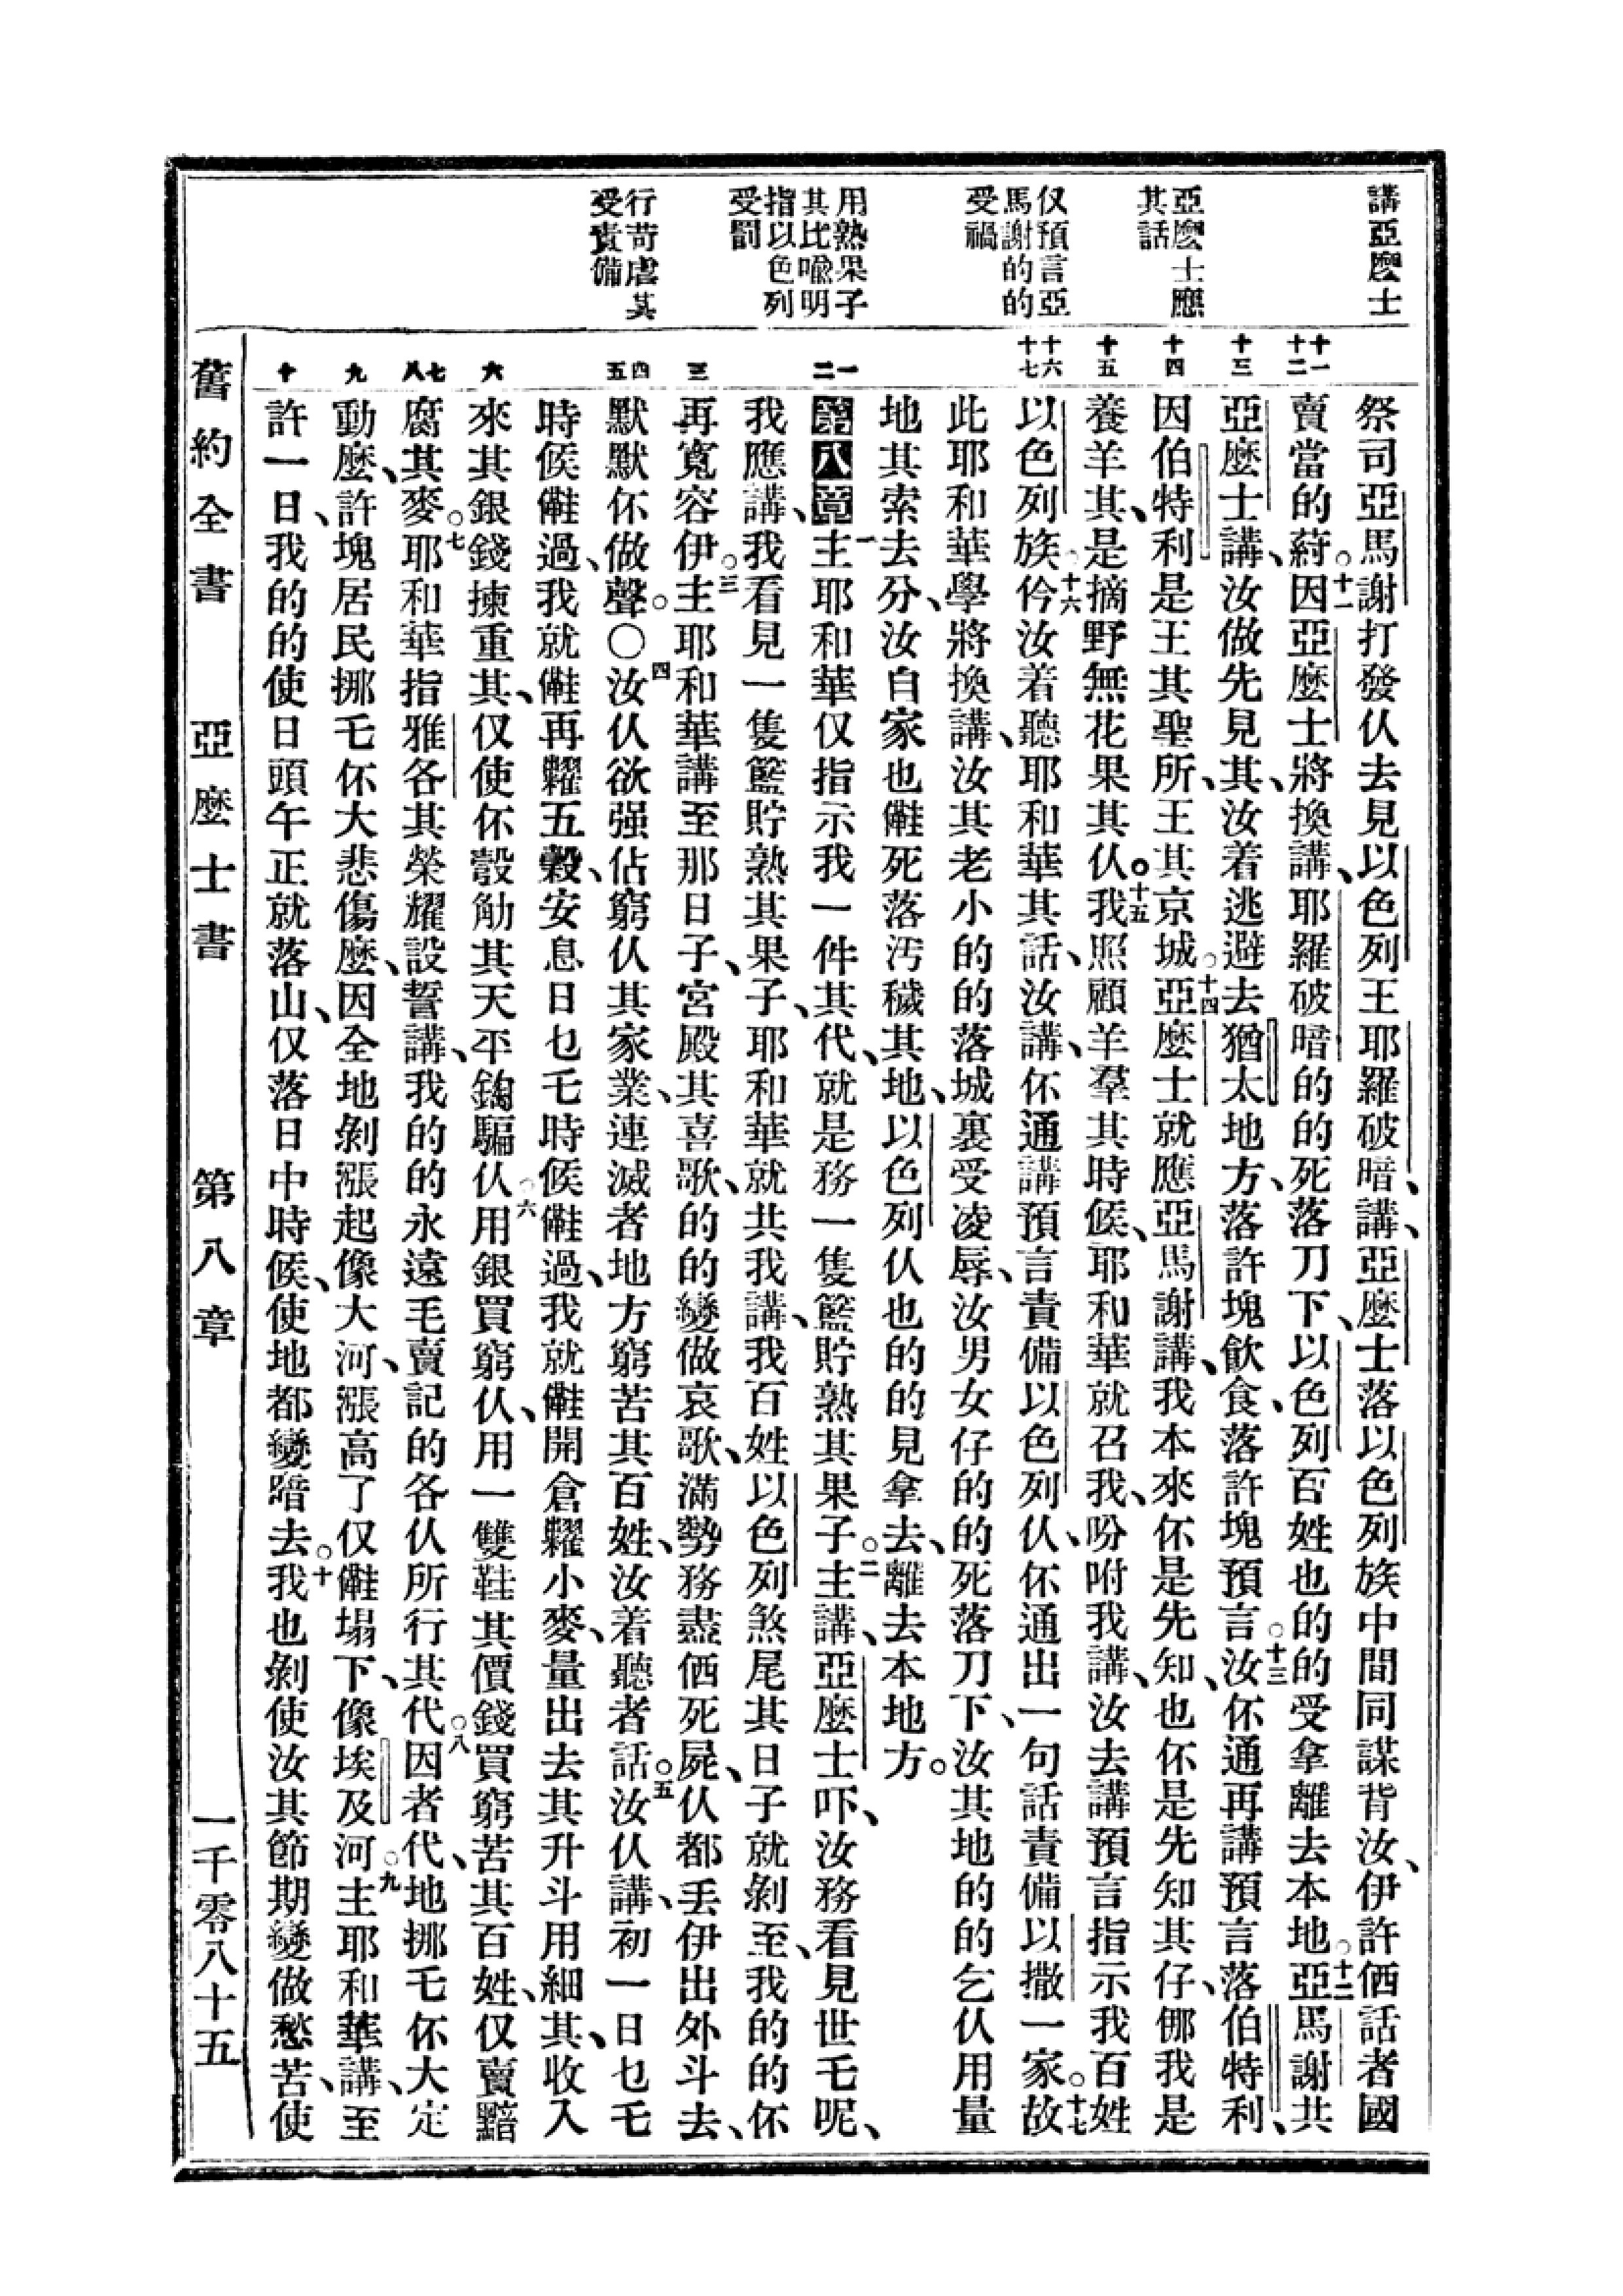 講亞麼士
亞麼士應
其話
仅預言亞
馬謝的的
受禍
用熟果子
其比喻明
指以色列
受罰
行苛虐其
受責備
十一
十二
十三
十四
十五
十六
十七
一
二
三
四
五
六
七
八
九
十
祭司亞馬謝打發仈去見以色列王耶羅破暗講、亞麼士落以色列族中間同謀背汝、伊許価話者國
賣當的葤。十一因亞麼士將換講、耶羅破暗的的死落刀下、以色列百姓也的的受拿離去本地。十二亞馬謝共
亞麼士講、汝做先見其、汝着逃避去猶太地方、落許塊飲食、落許塊預言。十三汝伓通再講預言落伯特利、
因伯特利是王其聖所、王其京城。十四亞麼士就應亞馬謝講、我本來伓是先知也伓是先知其仔、㑚我是
養羊其、是摘野無花果其仈。十五我照顧羊羣其時候、耶和華就召我、吩咐我講、汝去講預言指示我百姓
以色列族。十六伶汝着聽耶和華其話、汝講、伓通講預言責備以色列仈、伓通出一句話責備以撒一家。十七故
此耶和華學將換講、汝其老小的的落城裏受凌辱、汝男女仔的的死落刀下、汝其地的的乞仈用量
地其索去分、汝自家也𣍐死落汚穢其地、以色列仈也的的見拿去、離去本地方。
第八章一主耶和華仅指示我一件其代、就是務一隻籃貯熟其果子。二主講、亞麼士吓、汝務看見世乇呢、
我應講、我看見一隻籃貯熟其果子、耶和華就共我講、我百姓以色列煞尾其日子就剝至、我的的伓
再寬容伊。三主耶和華講至那日子、宮殿其喜歌、的的變做哀歌、滿勢務盡価死屍、仈都丟伊出外斗去、
默默伓做聲。〇四汝仈欲强佔窮仈其家業、連滅者地方窮苦其百姓、汝着聽者話。五汝仈講、初一日乜乇
時候𣍐過、我就𣍐再糶五穀、安息日乜乇時候𣍐過、我就𣍐開倉糶小麥、量出去其升斗用細其、收入
來其銀錢揀重其、仅使伓彀觔其天平鈎騙仈。六用銀買窮仈、用一雙鞋其價錢買窮苦其百姓、仅賣黯
腐其麥。七耶和華指雅各其榮耀設誓講、我的的永遠毛賣記的各仈所行其代。八因者代、地挪乇伓大定
動麼、許塊居民挪乇伓大悲傷麼、因全地剝漲起像大河、漲高了仅𣍐塌下、像埃及河。九主耶和華講、至
許一日、我的的使日頭午正就落山、仅落日中時候、使地都變暗去。十我也剝使汝其節期變做愁苦、使
舊約全書 亞麼士書 第八章 一千零八十五